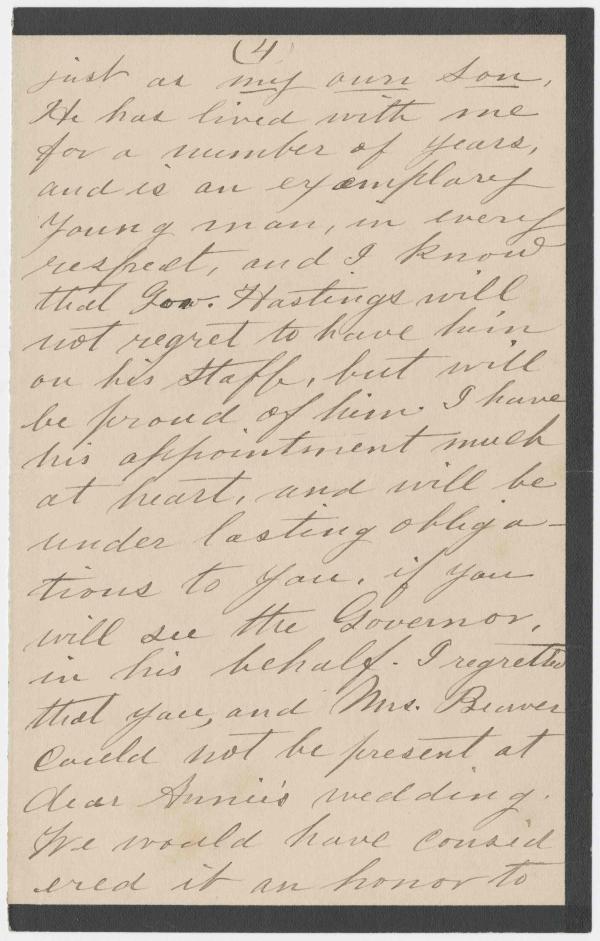 (4)
just as my own son.
He has lived with me
for a number of years,
and is an exemplary
young man, in every
respect, and I know
that Gov. Hastings will
not regret to have him
on his staff, but will
be proud of him. I have
his appointment much
at heart, and will be
under lasting obliga-
tions to you, if you
will see the Governor,
in his behalf. I regretted
that you, and Mrs. Beaver
could not be present at
dear Annie's wedding.
We would have consid
ered it an honor to